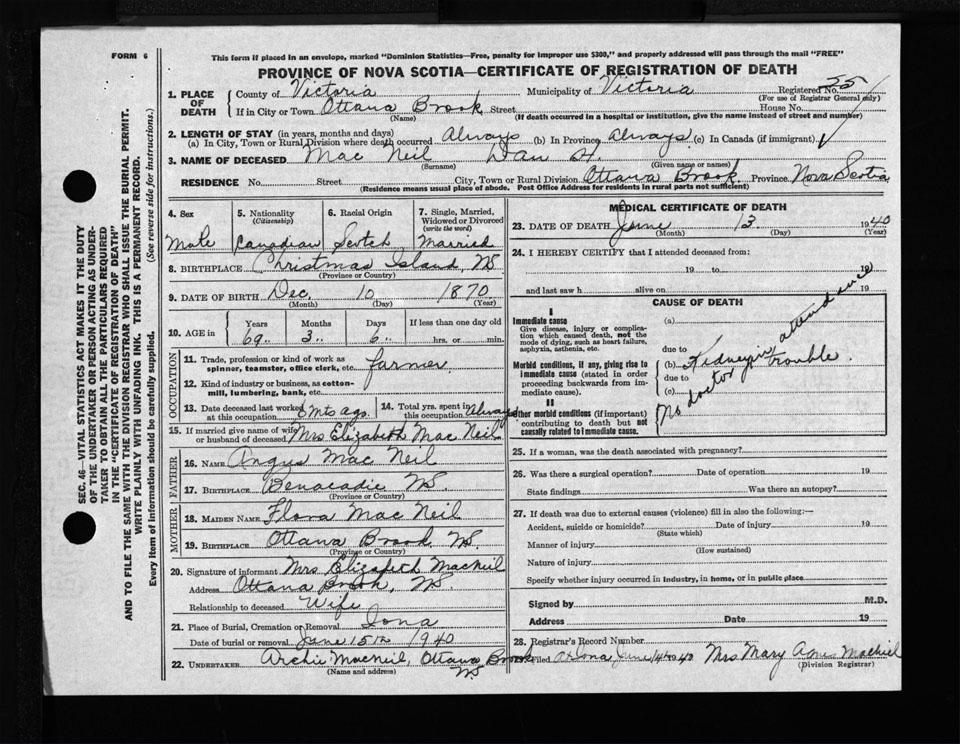 FORM 6
This form if placed in an envelope, marked "Dominion Statistics—Free, penalty for improper use $300," and properly addressed will pass through the mail "FREE"
PROVINCE OF NOVA SCOTIA—CERTIFICATE OF REGISTRATION OF DEATH
1. PLACE OF DEATH County of Victoria Municipality of Victoria Registered No. 55
(For use of Registrar General only)
If in City or Town Ottawa Brook Street House No.
(Name) (If death occurred in a hospital or institution, give the name instead of street and number)
2. LENGTH OF STAY (in years, months and days)
(a) In City, Town or Rural Division where death occurred Always (b) In Province Always (c) In Canada (if immigrant)
3. NAME OF DECEASED Mac Neil Dan H.
(Surname) (Given name or names)
RESIDENCE No. Street City, Town or Rural Division Ottawa Brook Province Nova Scotia
(Residence means usual place of abode. Post Office Address for residents in rural parts not sufficient)
4. Sex 5. Nationality (Citizenship) 6. Racial Origin 7. Single, Married, Widowed or Divorced (write the word)
Male Canadian Scotch Married
8. BIRTHPLACE Christmas Island, NS
(Province or Country)
9. DATE OF BIRTH Dec. 10 1870
(Month) (Day) (Year)
10. AGE in Years Months Days If less than one day old
69 3 6 hrs. or min.
OCCUPATION
11. Trade, profession or kind of work as spinner, teamster, office clerk, etc. farmer
12. Kind of industry or business, as cotton-mill, lumbering, bank, etc.
13. Date deceased last worked at this occupation 6 mts ago 14. Total yrs. spent in this occupation Always
15. If married give name of wife or husband of deceased Mrs Elizabeth Mac Neil
FATHER
16. NAME Angus Mac Neil
17. BIRTHPLACE Benacadie NS.
(Province or Country)
MOTHER
18. MAIDEN NAME Flora Mac Neil
19. BIRTHPLACE Ottawa Brook NS.
(Province or Country)
20. Signature of informant Mrs Elizabeth MacNeil
Address Ottawa Brook, NS
Relationship to deceased Wife
21. Place of Burial, Cremation or Removal Iona
Date of burial or removal June 15th 1940
22. UNDERTAKER Archie MacNeil, Ottawa Brook
(Name and address) NS
MEDICAL CERTIFICATE OF DEATH
23. DATE OF DEATH June 13 1940
(Month) (Day) (Year)
24. I HEREBY CERTIFY that I attended deceased from:
19 to 19
and last saw h alive on 19
CAUSE OF DEATH
I
Immediate cause (a)
Give disease, injury or complication which caused death, not the mode of dying, such as heart failure, asphyxia, asthenia, etc.
due to
Morbid conditions, if any, giving rise to immediate cause (stated in order proceeding backwards from immediate cause).
(b) Kidney trouble.
due to
(c)
No doctor in attendance
II
Other morbid conditions (if important) contributing to death but not causally related to immediate cause.
25. If a woman, was the death associated with pregnancy?
26. Was there a surgical operation? Date of operation 19
State findings Was there an autopsy?
27. If death was due to external causes (violence) fill in also the following:—
Accident, suicide or homicide? Date of injury 19
(State which)
Manner of injury
(How sustained)
Nature of injury
Specify whether injury occurred in industry, in home, or in public place
Signed by M.D.
Address Date 19
28. Registrar's Record Number
Filed at Iona June 14 1940 Mrs Mary Agnes MacNeil
(Division Registrar)
SEC. 46 - VITAL STATISTICS ACT MAKES IT THE DUTY
OF THE UNDERTAKER OR PERSON ACTING AS UNDER-
TAKER TO OBTAIN ALL THE PARTICULARS REQUIRED
IN THE "CERTIFICATE OF REGISTRATION OF DEATH"
AND TO FILE THE SAME WITH THE DIVISION REGISTRAR WHO SHALL ISSUE THE BURIAL PERMIT.
WRITE PLAINLY WITH UNFADING INK. THIS IS A PERMANENT RECORD.
Every item of information should be carefully supplied. (See reverse side for instructions.)